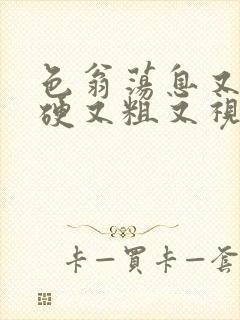 色翁蕩息又
硬又粗又視
卡—買卡—套